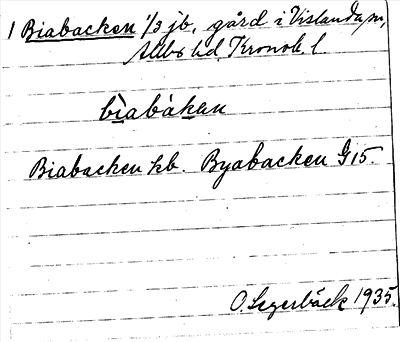 1 Biabacken 1/3 jb, gård i Vislanda sn,
Allbo hd, Kronob. l.
bìabàkan
Biabacken kb. Byabacken G 15.
O. Legerbäck 1935.